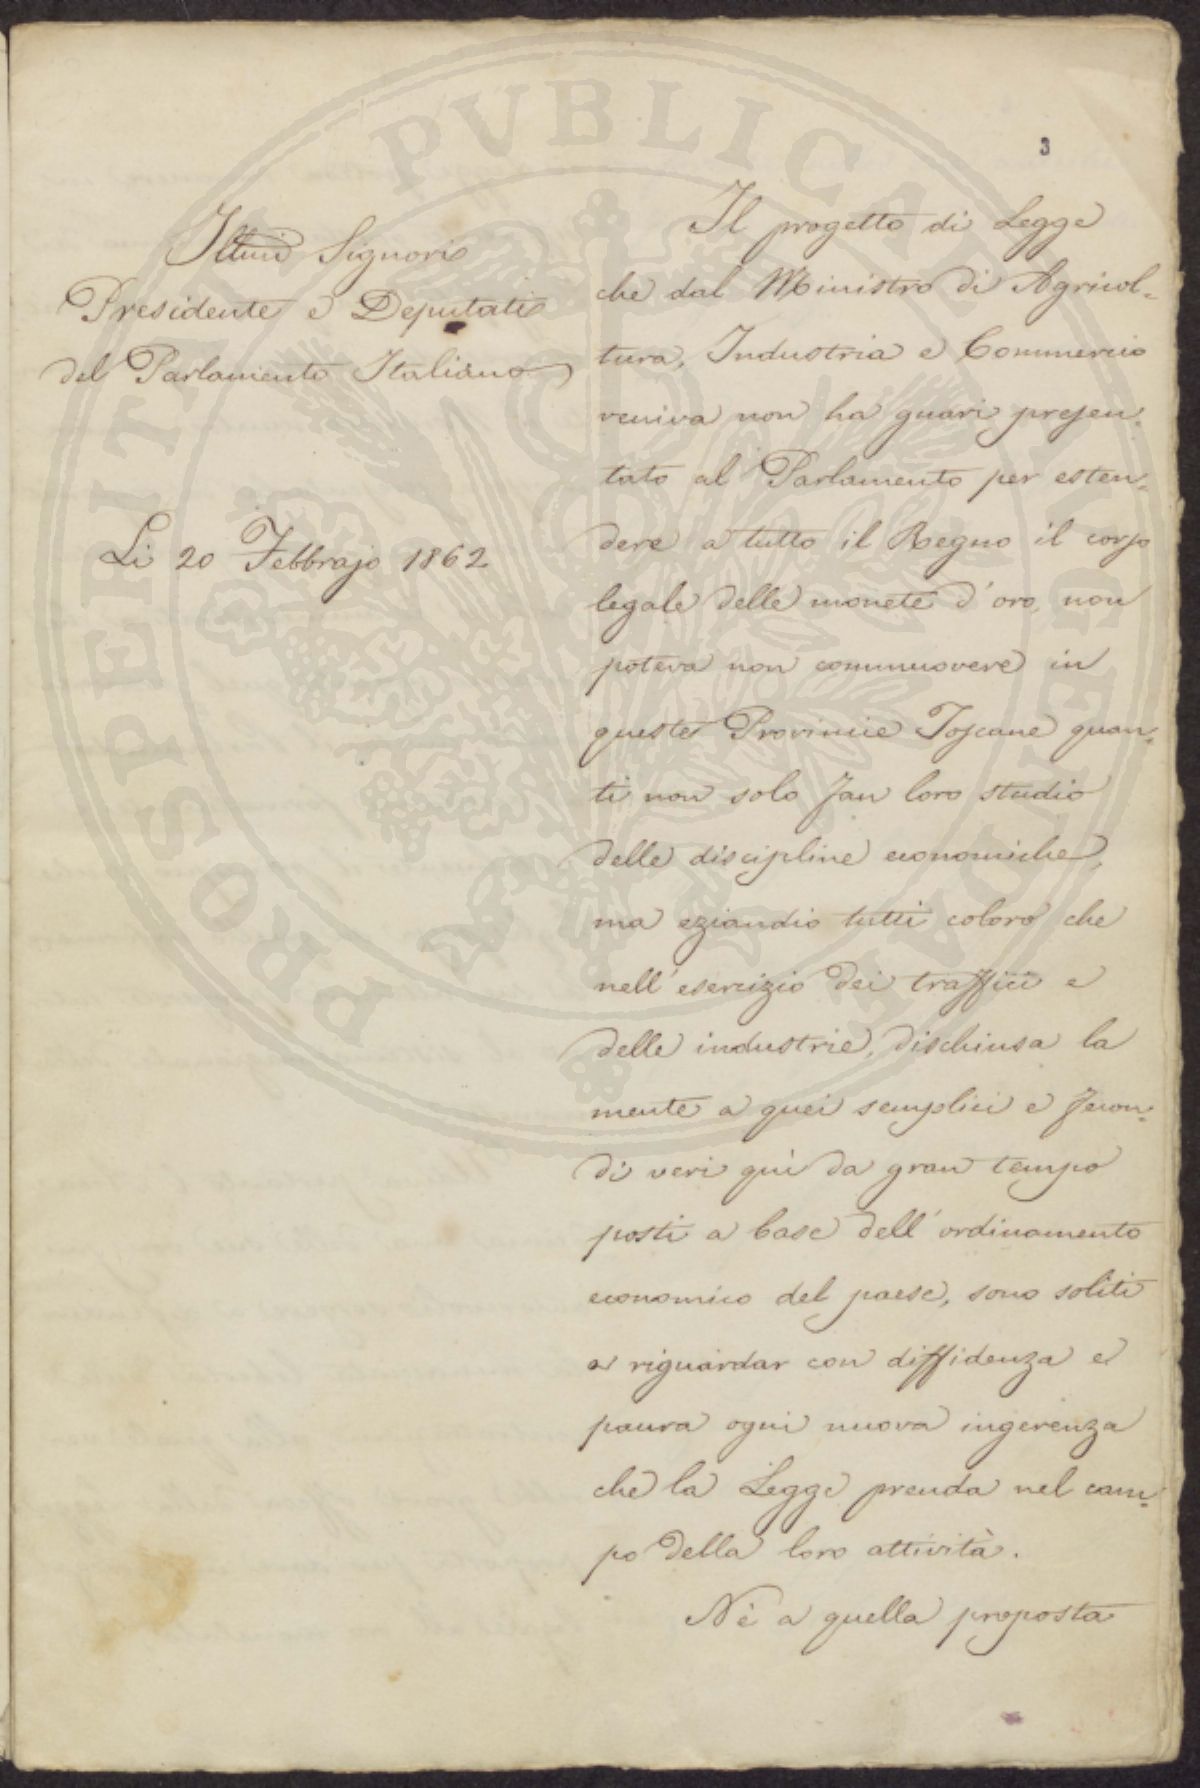 3
Illmi Signori
Presidente e Deputati
del Parlamento Italiano
Li 20 Febbrajo 1862
Il progetto di Legge
che dal Ministro di Agricol-
tura, Industria e Commercio
veniva non ha guari presen-
tato al Parlamento per esten-
dere a tutto il Regno il corso
legale delle monete d'oro, non
poteva non commuovere in
queste Provincie Toscane quan-
ti non solo fan loro studio
delle discipline economiche,
ma eziandio tutti coloro che
nell'esercizio dei traffici e
delle industrie, dischiusa la
mente a quei semplici e fecon-
di veri quì da gran tempo
posti a base dell'ordinamento
economico del paese, sono soliti
a riguardar con diffidenza e
paura ogni nuova ingerenza
che la Legge prenda nel cam-
po della loro attività.
Nè a quella proposta
PROSPERITATI PVBLICAE AVGENDAE